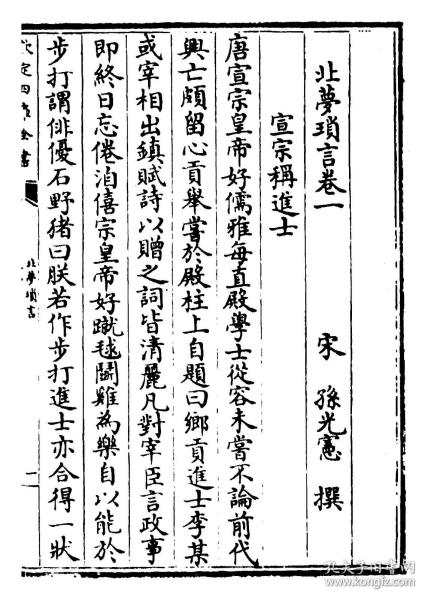 北夢瑣言卷一
宋 孫光憲 撰
宣宗稱進士
唐宣宗皇帝好儒雅每直殿學士從容未嘗不論前代
興亡頗留心貢舉嘗於殿柱上自題曰鄉貢進士李某
或宰相出鎮賦詩以贈之詞皆清麗凡對宰臣言政事
即終日忘倦洎僖宗皇帝好蹴毬鬬雞為樂自以能於
步打謂俳優石野猪曰朕若作步打進士亦合得一狀
欽定四庫全書
北夢瑣言
一
孔夫子旧书网
www.kongfz.com